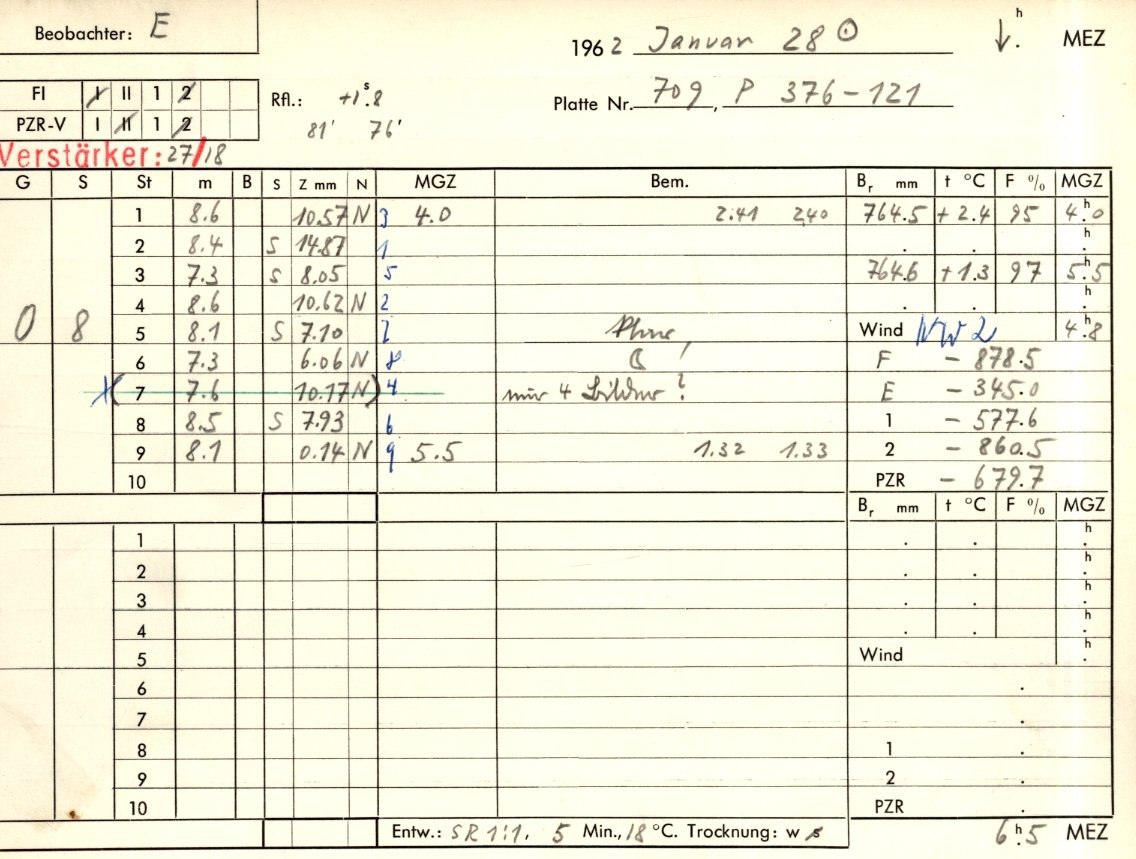 Beobachter: E
1962 Januar 28 ⊙ ↓. h MEZ
FI I II 1 2
Rfl.: +1ˢ.8
Platte Nr. 709, P 376-121
PZR-V I II 1 2
81' 76'
Verstärker: 27/18
G S St m B S Z mm N MGZ Bem. Bᵣ mm t °C F % MGZ
0 8
1 8.6 10.57 N 3 4.0 2.41 240 764.5 +2.4 95 4ʰ.0
2 8.4 S 14.87 1 . . h.
3 7.3 S 8.05 5 764.6 +1.3 97 5ʰ.5
4 8.6 10.62 N 2 . . h.
5 8.1 S 7.10 7 Wind NW 2 4ʰ.8
6 7.3 6.06 N 8 F - 878.5
(7 7.6 10.17 N) 4 nur 4 Bilder ? E - 345.0
8 8.5 S 7.93 6 1 - 577.6
9 8.1 0.14 N 9 5.5 1.32 1.33 2 - 860.5
10 PZR - 679.7
Bᵣ mm t °C F % MGZ
1 . . h.
2 . . h.
3 . . h.
4 . . h.
5 Wind h.
6 .
7 .
8 1 .
9 2 .
10 PZR .
Entw.: SR 1:1. 5 Min., 18 °C. Trocknung: w s 6ʰ.5 MEZ